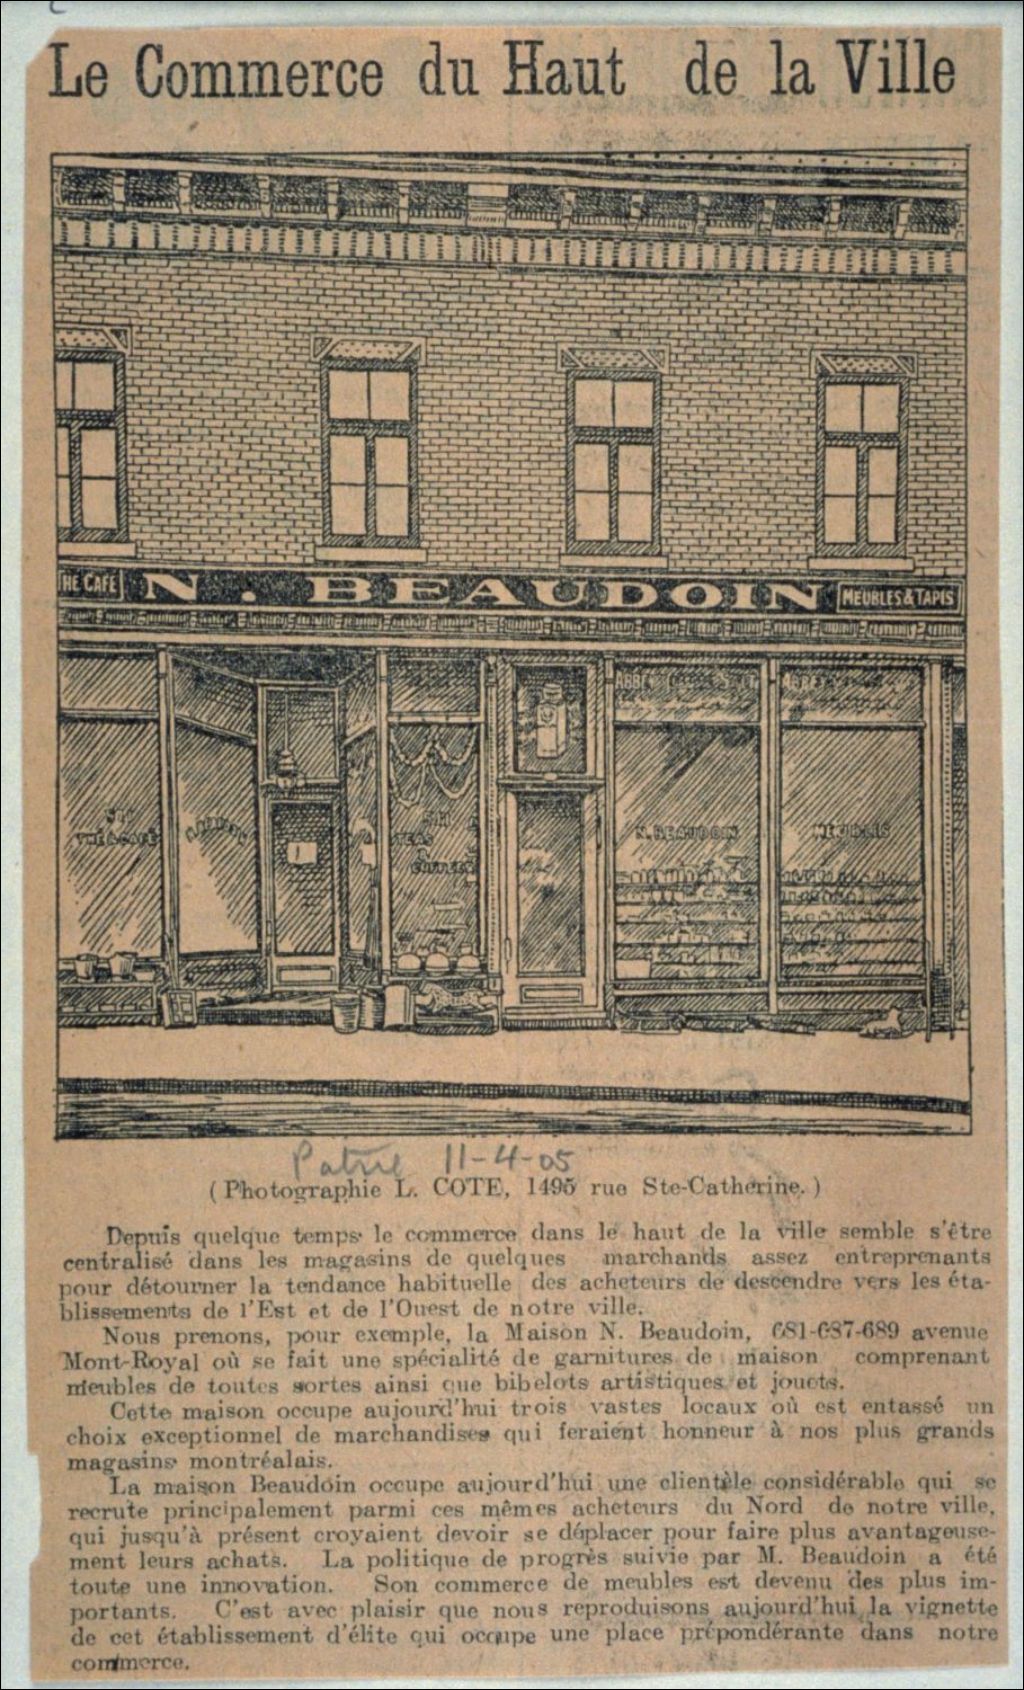 Le Commerce du Haut de la Ville
THE CAFÉ
N. BEAUDOIN
MEUBLES & TAPIS
THÉ & CAFÉ
TEAS
&
COFFEES
N. BEAUDOIN
MEUBLES
Patrie 11-4-05
(Photographie L. COTE, 1495 rue Ste-Catherine.)
Depuis quelque temps le commerce dans le haut de la ville semble s'être
centralisé dans les magasins de quelques marchands assez entreprenants
pour détourner la tendance habituelle des acheteurs de descendre vers les éta-
blissements de l'Est et de l'Ouest de notre ville.
Nous prenons, pour exemple, la Maison N. Beaudoin, 681-687-689 avenue
Mont-Royal où se fait une spécialité de garnitures de maison comprenant
meubles de toutes sortes ainsi que bibelots artistiques et jouets.
Cette maison occupe aujourd'hui trois vastes locaux où est entassé un
choix exceptionnel de marchandises qui feraient honneur à nos plus grands
magasins montréalais.
La maison Beaudoin occupe aujourd'hui une clientèle considérable qui se
recrute principalement parmi ces mêmes acheteurs du Nord de notre ville,
qui jusqu'à présent croyaient devoir se déplacer pour faire plus avantageuse-
ment leurs achats. La politique de progrès suivie par M. Beaudoin a été
toute une innovation. Son commerce de meubles est devenu des plus im-
portants. C'est avec plaisir que nous reproduisons aujourd'hui la vignette
de cet établissement d'élite qui occupe une place prépondérante dans notre
commerce.